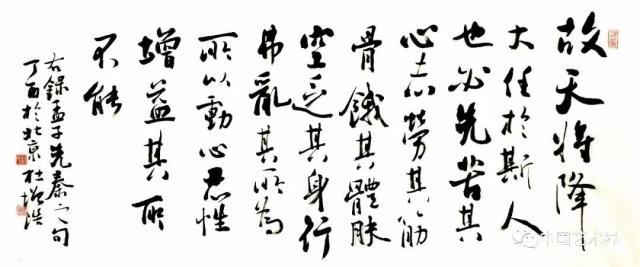 故天将降
大任於斯人
也必先苦其
心志勞其筋
骨餓其體肤
空乏其身行
弗亂其所為
所以動心忍性
增益其所
不能
右錄孟子先秦之句
丁酉於北京杜增浩
中国艺术界